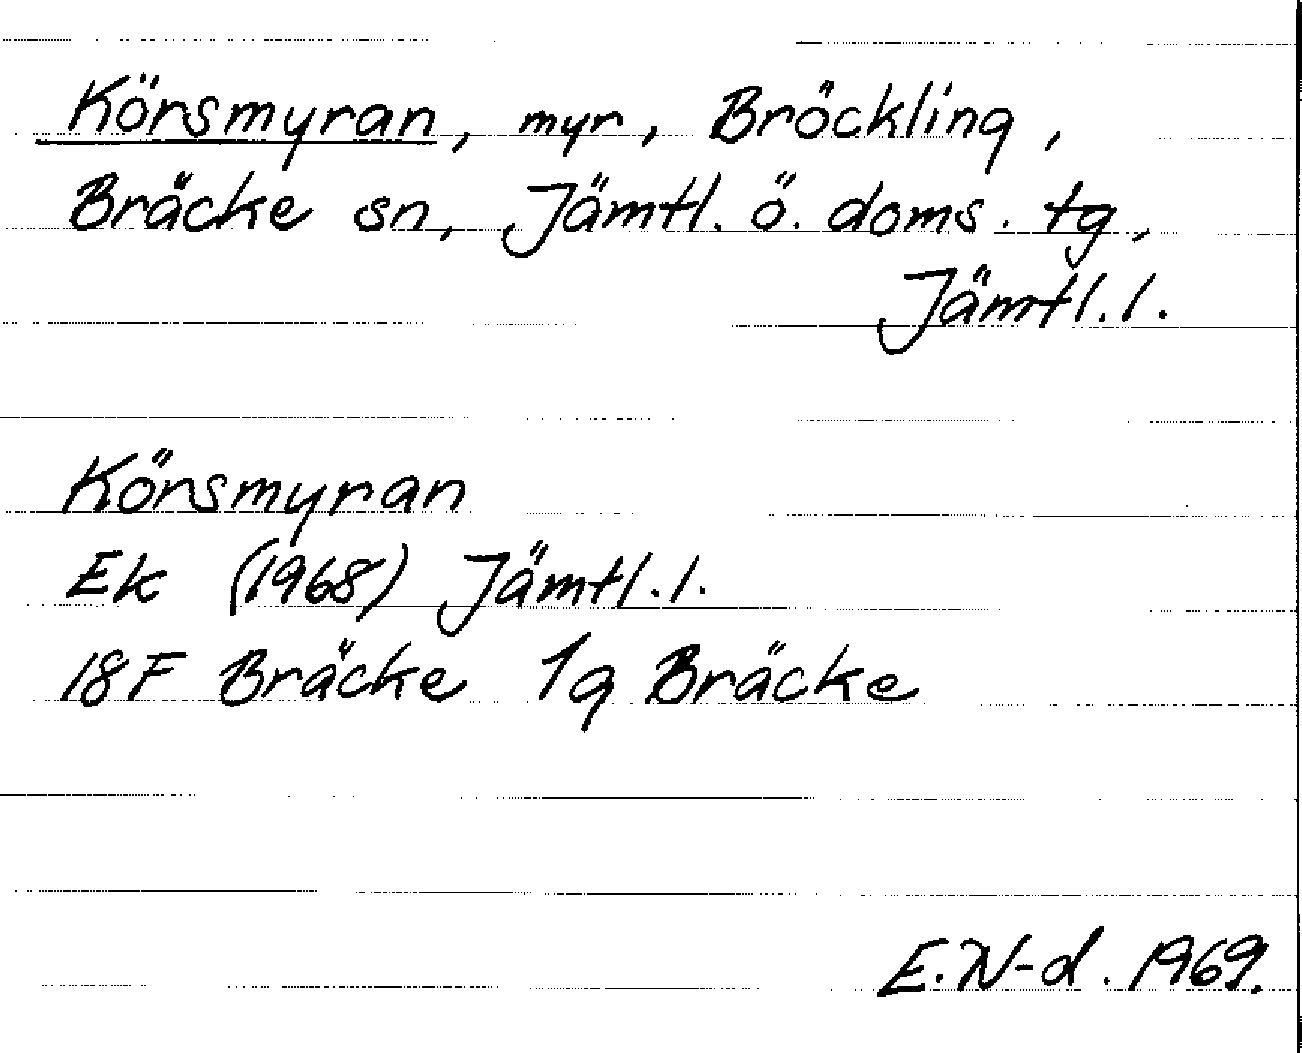 Körsmyran, myr, Bröckling,
Bräcke sn, Jämtl. ö. doms. tg,
Jämtl. l.
Körsmyran
Ek (1968) Jämtl. l.
18F Bräcke 1g Bräcke
E.N-d. 1969.